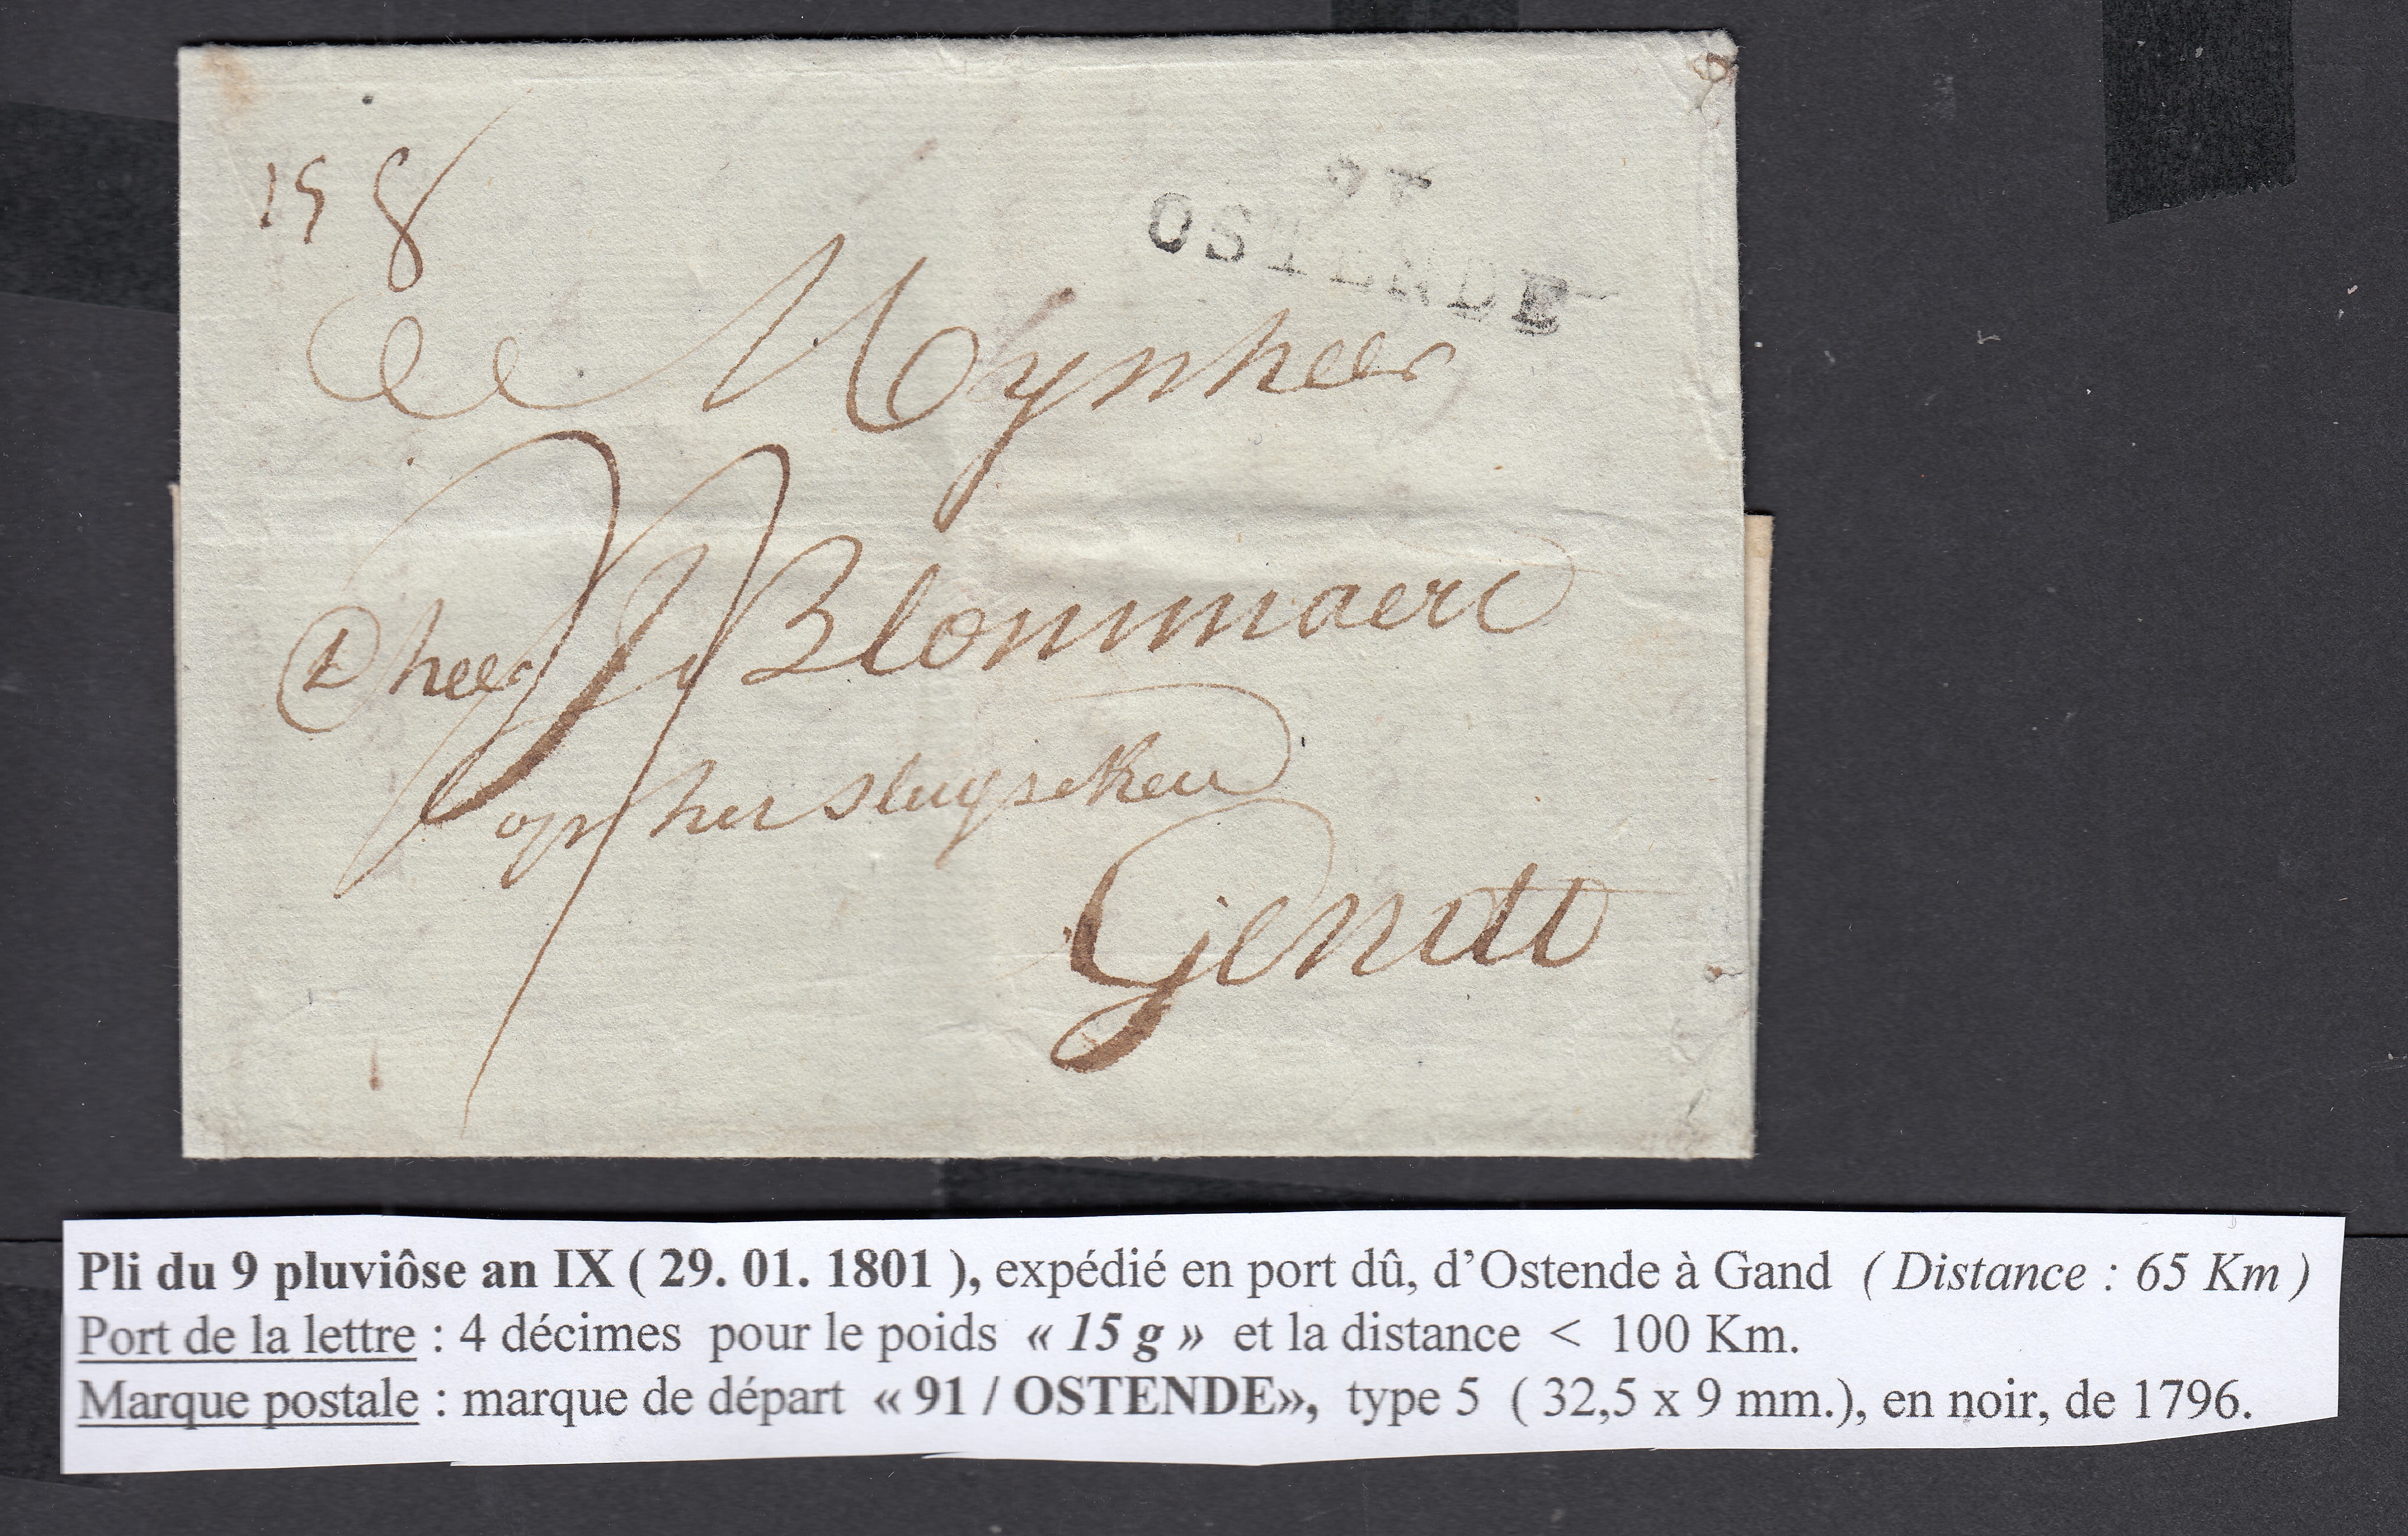 15 g
91
OSTENDE
Mynheer
Dheer J Blommaert
op het sluyseken
Gendt
Pli du 9 pluviôse an IX ( 29. 01. 1801 ), expédié en port dû, d’Ostende à Gand ( Distance : 65 Km )
Port de la lettre : 4 décimes pour le poids « 15 g » et la distance < 100 Km.
Marque postale : marque de départ « 91 / OSTENDE», type 5 ( 32,5 x 9 mm.), en noir, de 1796.